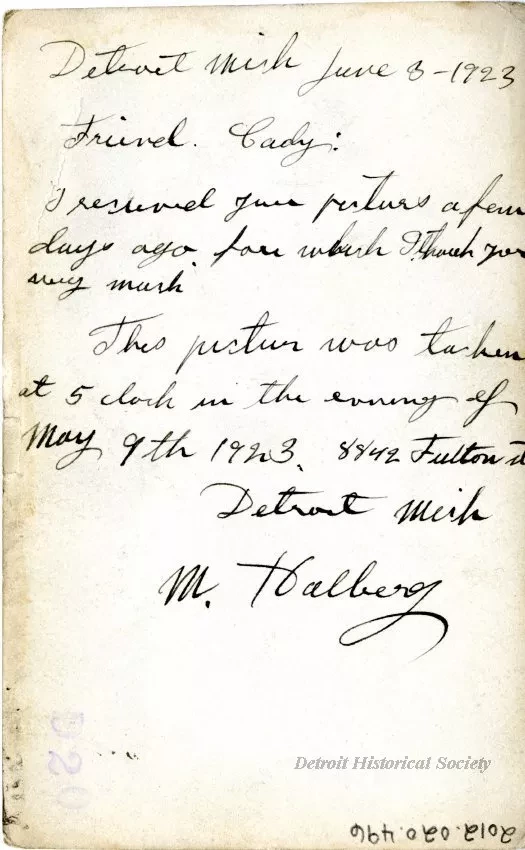 Detroit Mish June 8-1923
Friend. Cady:
I resieved your picture a few
days ago. for which I thank you
very mush
This pictur was taken
at 5 clock in the evening of
May 9th 1923. 8842 Fulton st
Detroit Mish
M. Halberg
Detroit Historical Society
2012.020.496